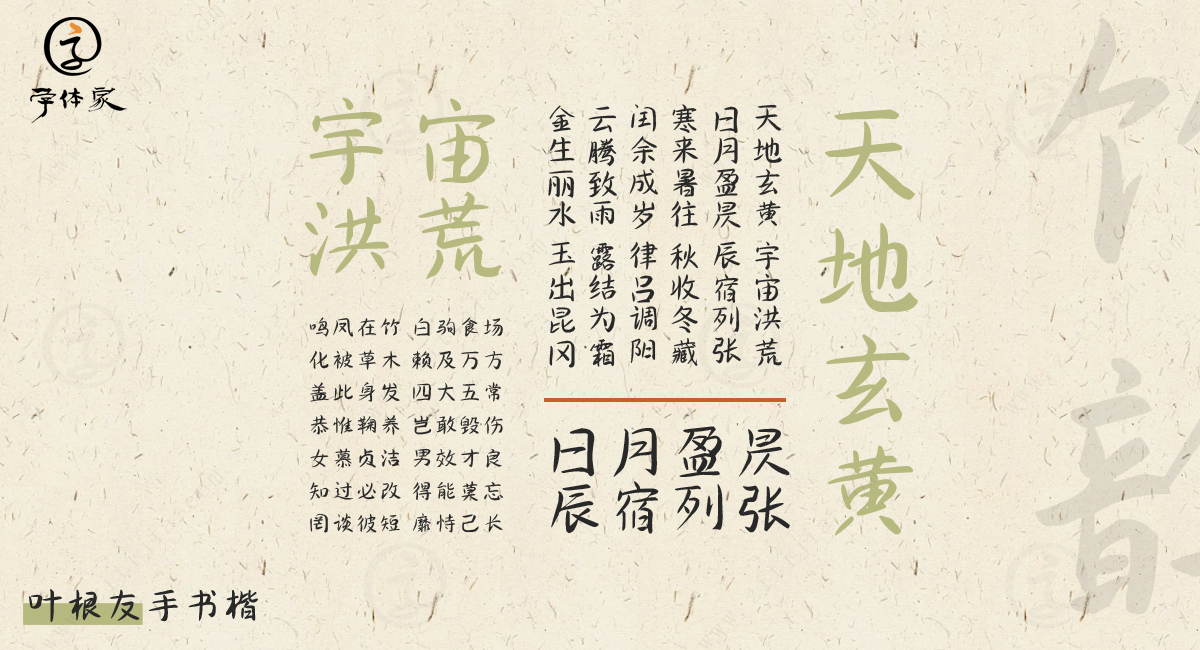 字
字体家
天地玄黄
天地玄黄 宇宙洪荒
日月盈昃 辰宿列张
寒来暑往 秋收冬藏
闰余成岁 律吕调阳
云腾致雨 露结为霜
金生丽水 玉出昆冈
日月盈昃
辰宿列张
宇宙
洪荒
鸣凤在竹 白驹食场
化被草木 赖及万方
盖此身发 四大五常
恭惟鞠养 岂敢毁伤
女慕贞洁 男效才良
知过必改 得能莫忘
罔谈彼短 靡恃己长
叶根友手书楷